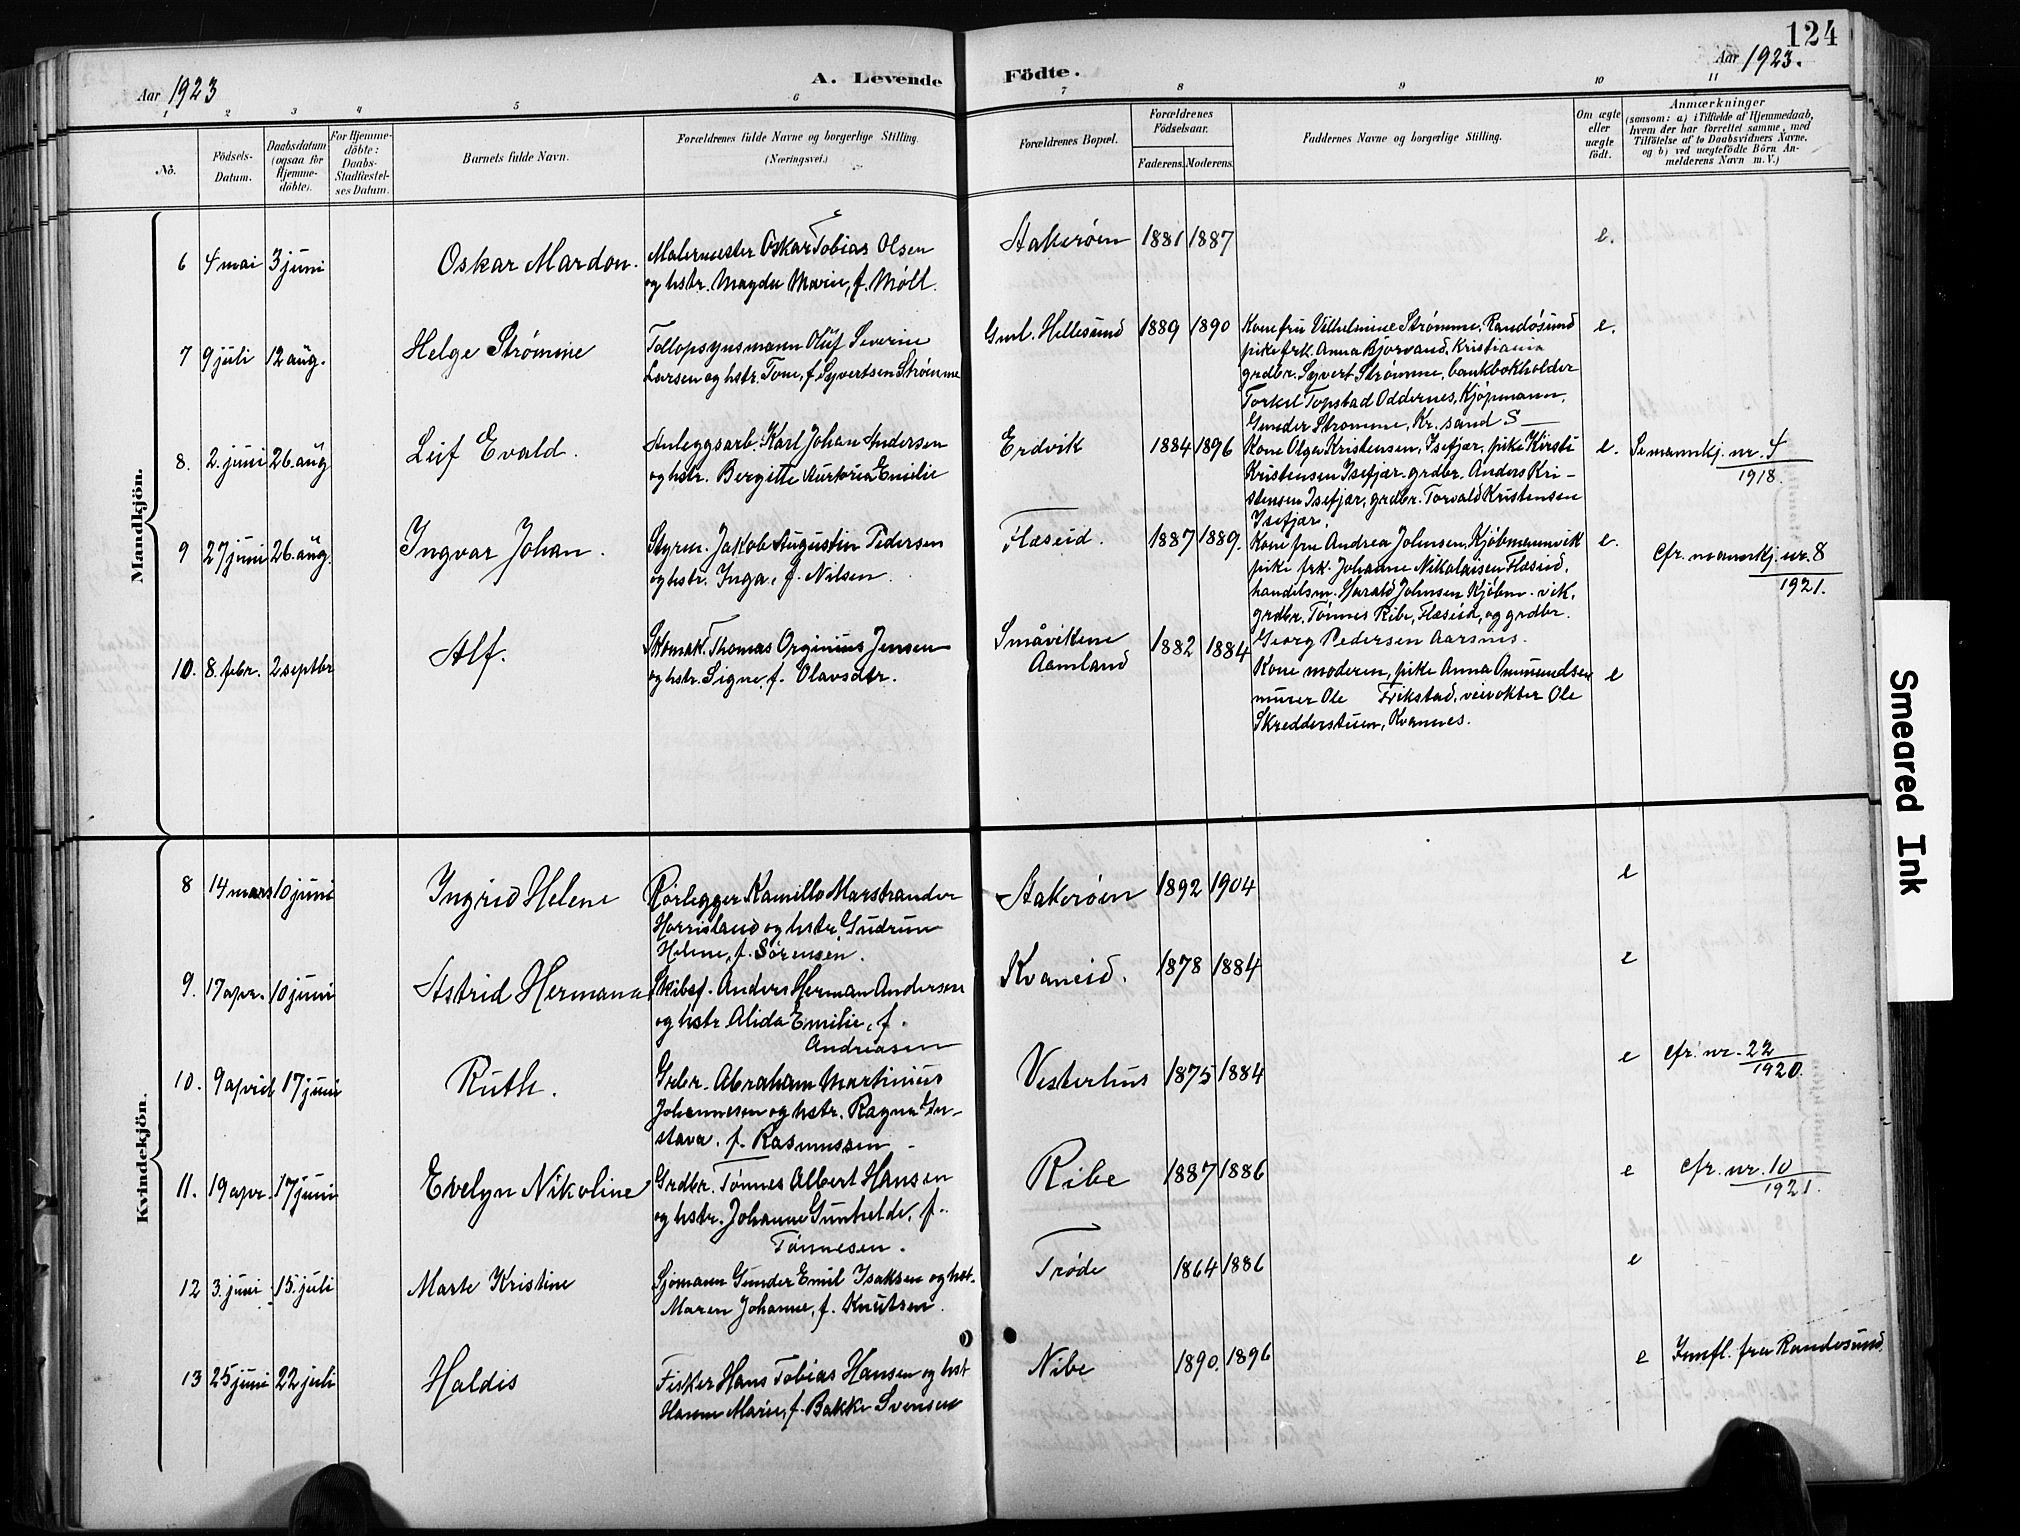 124
Aar 1923
A. Levende
Födte.
Aar 1923.
1 2 3 4 5 6 7 8 9 10 11
No.
Födsels-
Datum.
Daabsdatum
(ogsaa for
Hjemme-
döbte).
For Hjemme-
döbte:
Daabs-
Stadfæstel-
ses Datum.
Barnets fulde Navn.
Forældrenes fulde Navne og borgerlige Stilling.
(Næringsvei.)
Forældrenes Bopæl.
Forældrenes
Födselsaar.
Faderens. Moderens.
Faddernes Navne og borgerlige Stilling.
Om ægte
eller
uægte
født.
Anmærkninger
(saasom: a) i Tilfælde af Hjemmedaab,
hvem der har forrettet samme, med
Tilföielse af to Daabsvidners Navne,
og b) ved uægtefödte Börn An-
melderens Navn m. V.)
Mandkjön.
6 4 mai 3 juni Oskar Mardon.
Malermester Oskar Tobias Olsen
og hstr. Magda Marie, f. Møll.
Aakerøen 1881 1887 e.
7 9 juli 12 aug. Helge Strømme
Tollopsynsmann Oluf Severin
Larsen og hstr. Tone, f. Syvertsen Strømme
Gml. Hellesund 1889 1890
Kone fru Vilhelmine Strømme, Randøsund
pike frk. Anna Bjorvand, Kristiania
grdbr. Syvert Strømme, bankbokholder
Torkel Topstad Oddernes, Kjøpmann,
Gunder Strømme, Kr.sand S
e.
8. 2. juni 26. aug Leif Evald.
Anleggsarb. Karl Johan Andersen
og hstr. Bergitte Emilie
Erdvik 1884 1896
Kone Olga Kristensen, Isefjær, pike Kirsti
Kristensen Isefjær, grdbr. Anders Kri-
stensen Isefjær, grdbr. Torvald Kristensen
Isefjær.
e. Se mannkj. nr. 4
1918.
9 27 juni 26. aug. Ingvar Johan.
Styrm. Jakob Augustin Pedersen
og hstr. Inga, f. Nilsen.
Flæseid. 1887 1889.
Kone fru Andrea Johnsen, Kjøbmannvik
pike frk. Johanne Nikolaisen Flæseid,
handelsm. Harald Johnsen Kjøbm. vik,
grdbr. Tønnes Ribe, Flæseid, og grdbr.
Georg Pedersen Aarsnes.
e. cfr. mannkj. nr. 8
1921.
10. 8. febr. 2 septbr Alf.
Skomak. Thomas Orginius Jensen
og hstr. Signe, f. Olavsdtr.
Småvikene
Aamland
1882 1884
Kone moderen, pike Anna Ommundsen
murer Ole Frikstad, veivokter Ole
Skredderstuen, Kvannes.
e
Kvindekjön.
8 14 mars 10 juni Ingrid Helene
Rørlegger Kamillo Marstrander
Horrisland og hstr. Gudrun
Helene, f. Sørensen.
Aakerøen 1892 1904 e
9. 17 apr. 10 juni Astrid Hermana
Skibsf. Anders Herman Andersen
og hstr Alida Emilie, f.
Andreasen
Kvaneid. 1878 1884 e
10. 9 april 17 juni Ruth.
Grdbr. Abraham Martinius
Johannesen og hstr. Ragna Gu-
stava, f. Rasmussen
Vesterhus 1875 1884 e cfr. nr. 22
1920.
11. 19 apr. 17 juni Evelyn Nikoline
Grdbr. Tønnes Albert Hansen
og hstr. Johanne Gunhelde, f.
Tønnesen.
Ribe 1887 1886 e cfr. nr. 10
1921.
12 3. juni 15. juli Marte Kristine
Sjømann Gunder Emil Isaksen og hst.
Maren Johanne, f. Knutsen.
Trøde 1864 1886 e
13 25 juni 22 juli Haldis
Fisker Hans Tobias Hansen og hst
Hanne Marie, f. Bakke Svensen
Nibe 1890. 1896 e Innfl. fra Randesund.
Smeared Ink